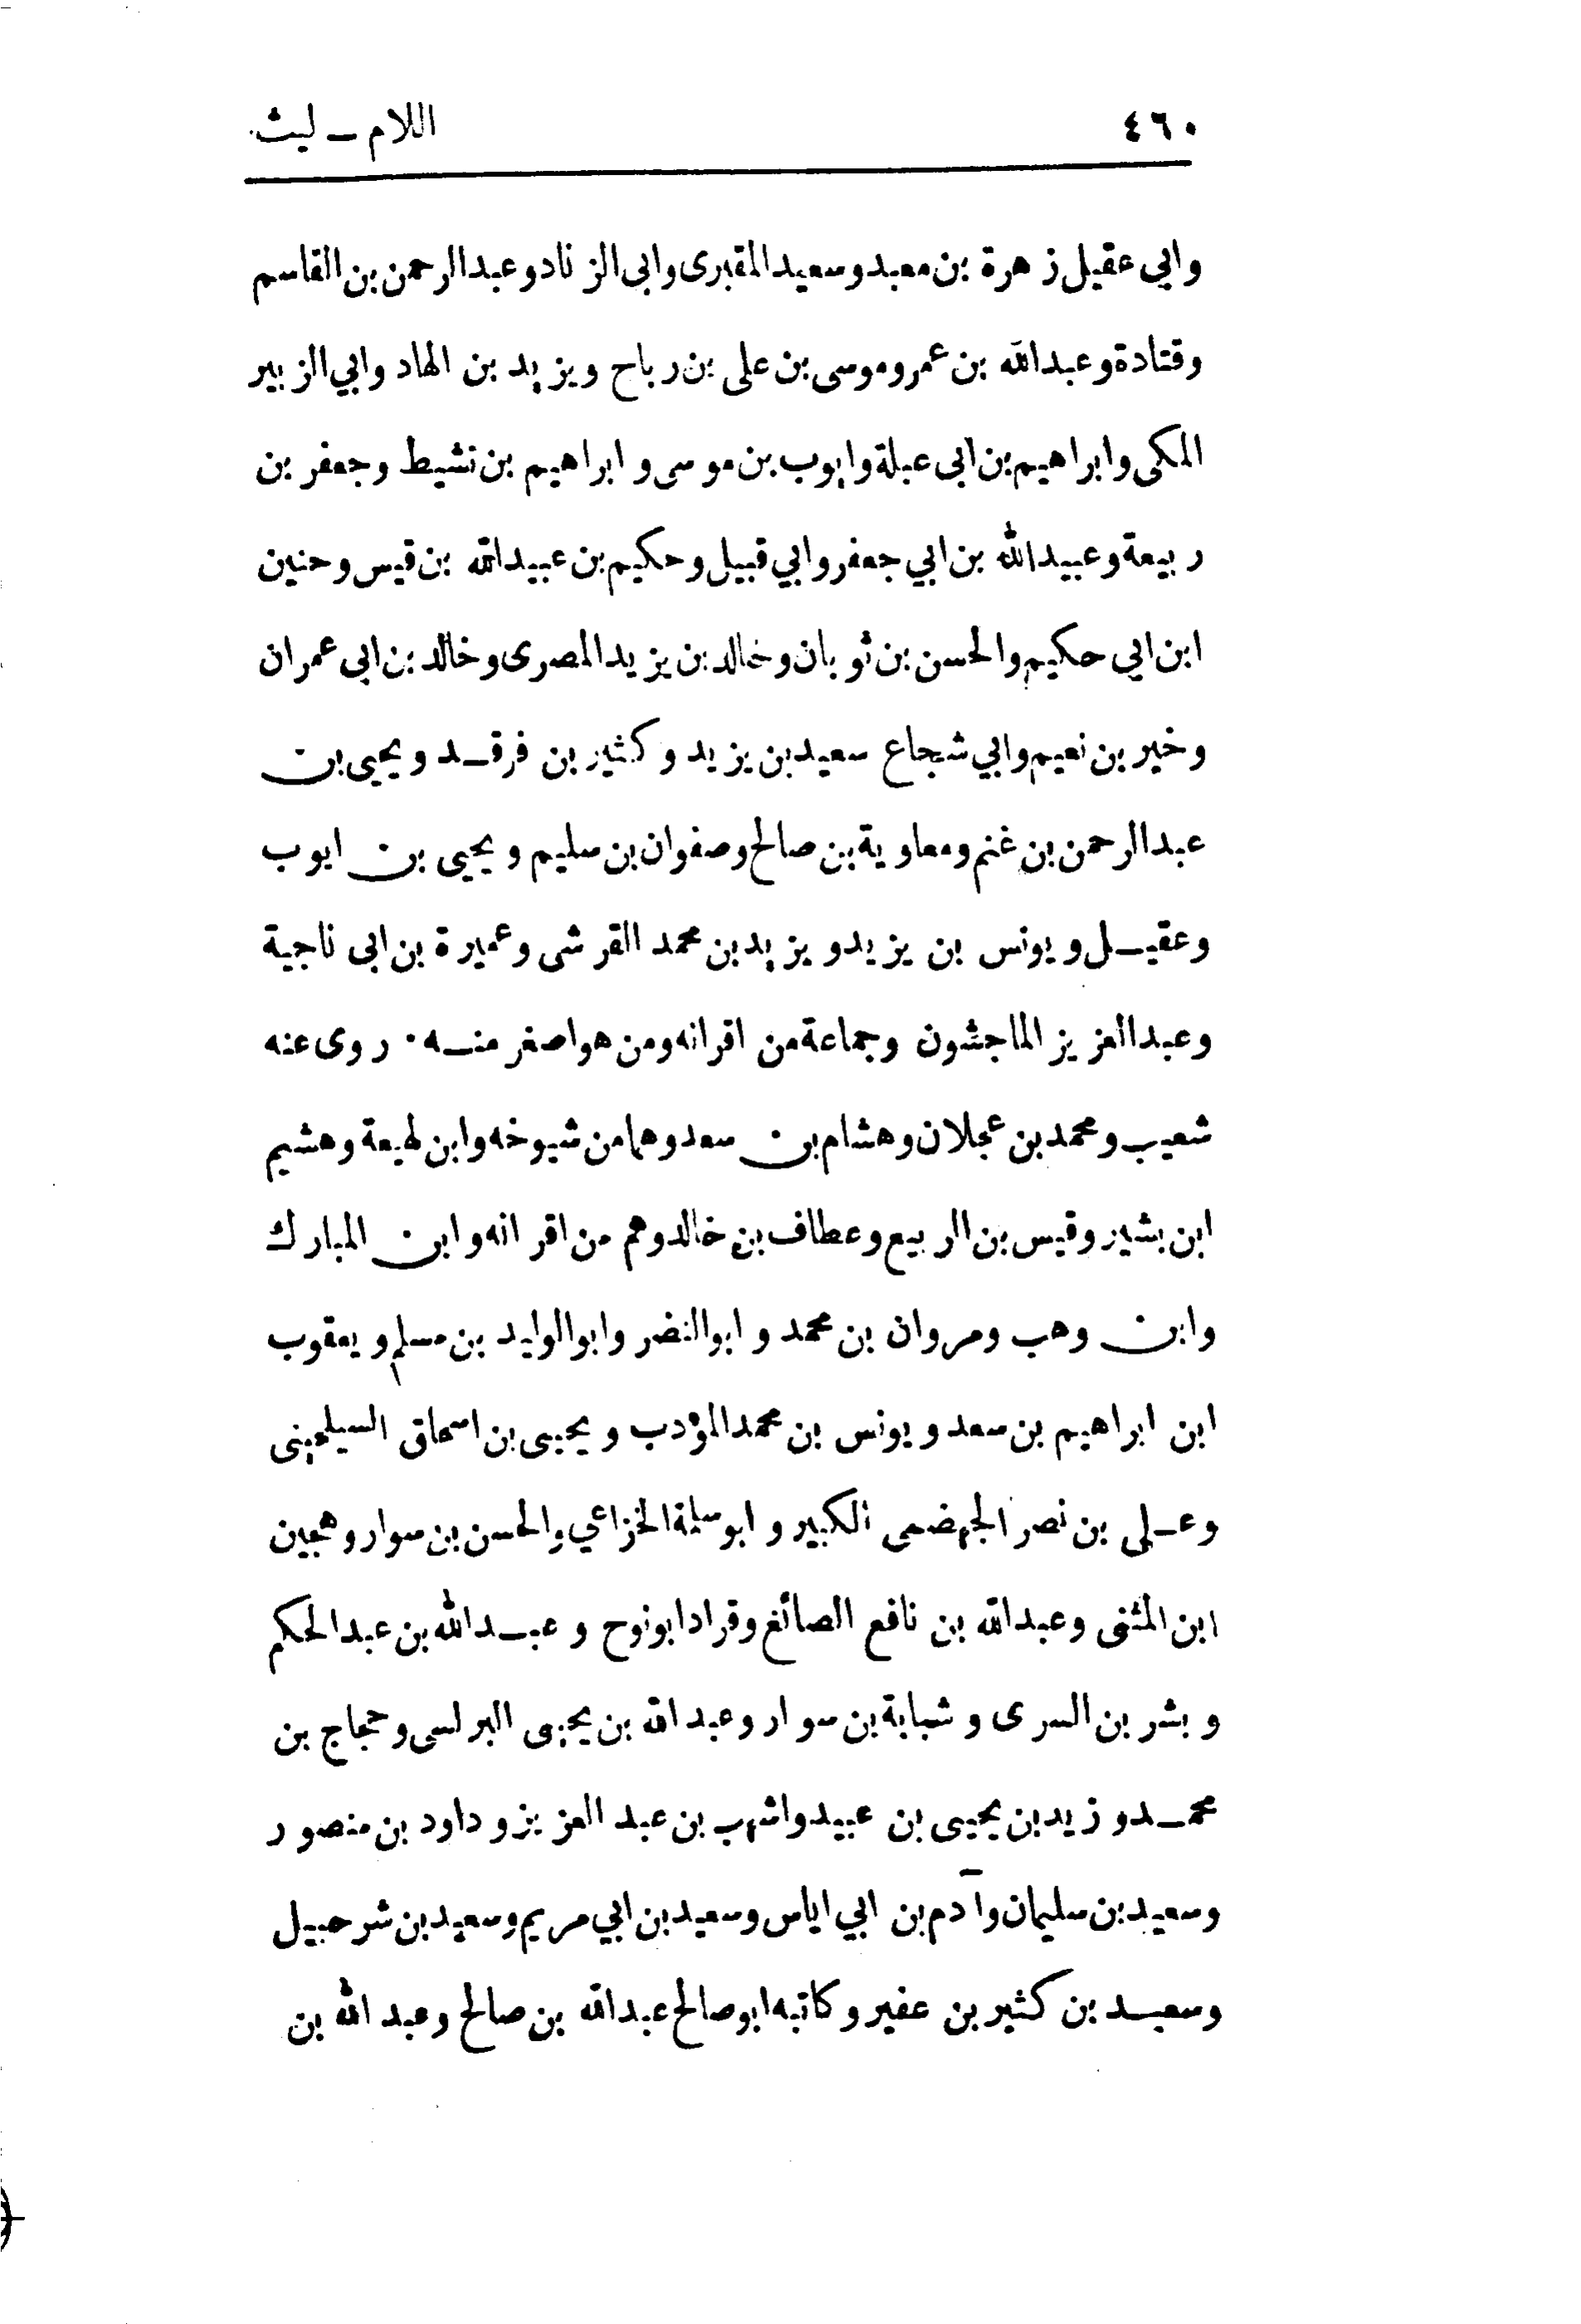 ٤٦٠
اللام – ليث
وابي عقيل زهرة بن معبد وسعيد المقبرى وابى الزناد وعبدالرحمن بن القاسم
وقتادة وعبدالله بن عمر وموسى بن على بن رباح ويزيد بن الهاد وابي الزبير
المكى وابراهيم بن ابى عبلة وايوب بن موسى وابراهيم بن نشيط وجعفر بن
ربيعة وعبيدالله بن ابي جعفر وابي قبيل وحكيم بن عبيدالله بن قيس وحنين
ابن ابي حكيم والحسن بن ثوبان وخالد بن يزيد المصرى وخالد بن ابى عمران
وخير بن نعيم وابي شجاع سعيد بن يزيد وكثير بن فرقد ويحيى بن
عبدالرحمن بن غنم ومعاوية بن صالح وصفوان بن سليم ويحيى بن ايوب
وعقيل ويونس بن يزيد ويزيد بن محمد القرشى وعميرة بن ابى ناجية
وعبدالعزيز الماجشون وجماعة من اقرانه ومن هو اصغر منه . روى عنه
شعيب ومحمد بن عجلان وهشام بن سعد وهما من شيوخه وابن لهيعة وهشيم
ابن بشير وقيس بن الربيع وعطاف بن خالد وهم من اقرانه وابن المبارك
وابن وهب ومروان بن محمد وابو النضر وابو الوليد بن مسلم ويعقوب
ابن ابراهيم بن سعد ويونس بن محمد المؤدب ويحيى بن اسحاق السيلحينى
وعلى بن نصر الجهضمى الكبير وابو سلمة الخزاعي والحسن بن سوار وحجين
ابن المثنى وعبدالله بن نافع الصائغ وقراد ابو نوح وعبدالله بن عبدالحكم
وبشر بن السرى وشبابة بن سوار وعبدالله بن يحيى البرلسى وحجاج بن
محمد وزيد بن يحيى بن عبيد واشهب بن عبدالعزيز وداود بن منصور
وسعيد بن سليمان وآدم بن ابي اياس وسعيد بن ابي مريم وسعيد بن شرحبيل
وسعيد بن كثير بن عفير وكاتبه ابو صالح عبدالله بن صالح وعبدالله بن